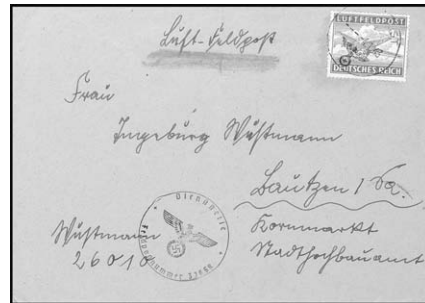 Luft-Feldpost
LUFTFELDPOST
DEUTSCHES REICH
Frau
Ingeburg Wustmann
Bautzen / Sa.
Kornmarkt
Stadthochbauamt
Wustmann
26010
Dienststelle
Feldpostnummer